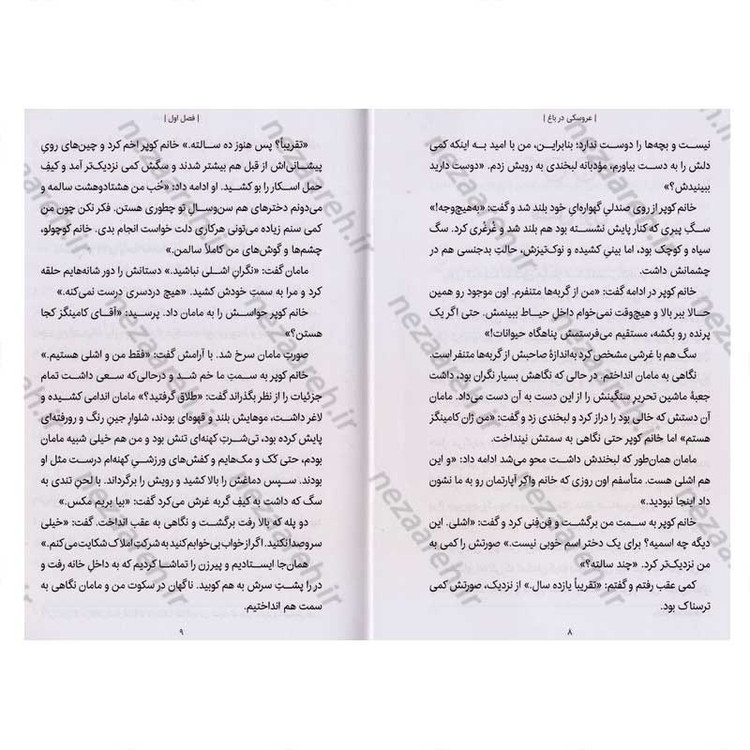 | عروسکی در باغ |
نیست و بچه‌ها را دوست ندارد؛ بنابراین، من با امید به اینکه کمی
دلش را به دست بیاورم، مؤدبانه لبخندی به رویش زدم. «دوست دارید
ببینیدش؟»
خانم کوپر از روی صندلیِ گهواره‌ایِ خود بلند شد و گفت: «به‌هیچ‌وجه!»
سگِ پیری که کنار پایش نشسته بود هم بلند شد و غُرغُری کرد. سگ
سیاه و کوچک بود، اما بینیِ کشیده و نوک‌تیزش، حالتِ بدجنسی هم در
چشمانش داشت.
خانم کوپر در ادامه گفت: «من از گربه‌ها متنفرم. اون موجود رو همین
حالا ببر بالا و هیچ‌وقت نمی‌خوام داخلِ حیاط ببینمش. حتی اگر یک
پرنده رو بکشه، مستقیم می‌فرستمش پناهگاه حیوانات!»
سگ هم با غرشی مشخص کرد به‌اندازهٔ صاحبش از گربه‌ها متنفر است.
نگاهی به مامان انداختم. در حالی که نگاهش بسیار نگران بود، داشت
جعبهٔ ماشین تحریرِ سنگینش را از این دست به آن دست می‌داد. مامان
آن دستش که خالی بود را دراز کرد و لبخندی زد و گفت: «من ژان کامینگز
هستم» اما خانم کوپر حتی نگاهی به سمتش نینداخت.
مامان همان‌طور که لبخندش داشت محو می‌شد ادامه داد: «و این
هم اشلی هست. متأسفم اون روزی که خانم واکِر آپارتمان رو به ما نشون
داد اینجا نبودید.»
خانم کوپر به سمت من برگشت و فِن‌فِنی کرد و گفت: «اشلی. این
دیگه چه اسمیه؟ برای یک دختر اسم خوبی نیست.» صورتش را کمی به
من نزدیک‌تر کرد. «چند سالته؟»
کمی عقب رفتم و گفتم: «تقریباً یازده سال.» از نزدیک، صورتش کمی
ترسناک بود.
۸
| فصل اول |
«تقریباً؟ پس هنوز ده سالته.» خانم کوپر اخم کرد و چین‌های رویِ
پیشانی‌اش از قبل هم بیشتر شدند و سگش کمی نزدیک‌تر آمد و کیفِ
حمل اسکار را بو کشید. او ادامه داد: «خُب من هشتادوهشت سالمه و
می‌دونم دخترهای هم سن‌وسالِ تو چطوری هستن. فکر نکن چون من
کمی سنم زیاده می‌تونی هرکاری دلت خواست انجام بدی. خانم کوچولو،
چشم‌ها و گوش‌های من کاملاً سالمن.»
مامان گفت: «نگرانِ اشلی نباشید.» دستانش را دور شانه‌هایم حلقه
کرد و مرا به سمتِ خودش کشید. «هیچ دردسری درست نمی‌کنه.»
خانم کوپر حواسش را به مامان داد. پرسید: «آقای کامینگز کجا
هستن؟»
صورتِ مامان سرخ شد. با آرامش گفت: «فقط من و اشلی هستیم.»
خانم کوپر به سمتِ ما خم شد و درحالی‌که سعی داشت تمام
جزئیات را از نظر بگذراند گفت: «طلاق گرفتید؟» مامان اندامی کشیده و
لاغر داشت، موهایش بلند و قهوه‌ای بودند، شلوار جینِ رنگ و رورفته‌ای
پایش کرده بود، تی‌شرتِ کهنه‌ای تنش بود و من هم خیلی شبیه مامان
بودم، حتی کَک و مک‌هایم و کفش‌های ورزشیِ کهنه‌ام درست مثل او
بودند. سپس دماغش را بالا کشید و رویش را برگرداند. با لحنِ تندی به
سگ که داشت به کیفِ گربه غرش می‌کرد گفت: «بیا بریم مکس.»
دو پله که بالا رفت برگشت و نگاهی به عقب انداخت. گفت: «خیلی
سروصدا نکنید. اگر از خواب بی‌خوابم کنید به شرکت املاک شکایت می‌کنم.»
همان‌جا ایستادیم و پیرزن را تماشا کردیم که به داخلِ خانه رفت و
در را پشتِ سرش به هم کوبید. ناگهان در سکوت من و مامان نگاهی به
سمت هم انداختیم.
۹
nezaareh.ir